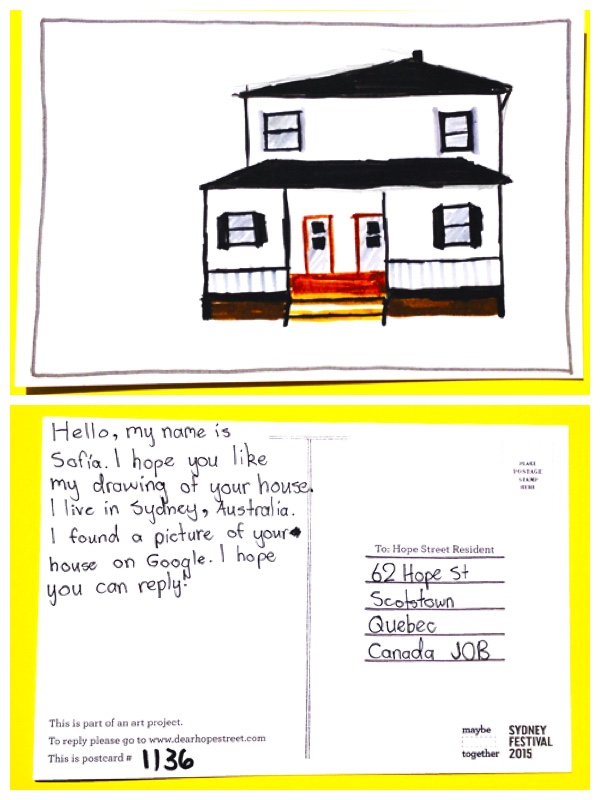 Hello, my name is
Sofía. I hope you like
my drawing of your house.
I live in Sydney, Australia.
I found a picture of your
house on Google. I hope
you can reply!
This is part of an art project.
To reply please go to www.dearhopestreet.com
This is postcard # 1136
PLACE
POSTAGE
STAMP
HERE
To: Hope Street Resident
62 Hope St
Scotstown
Quebec
Canada JOB
maybe
together
SYDNEY
FESTIVAL
2015